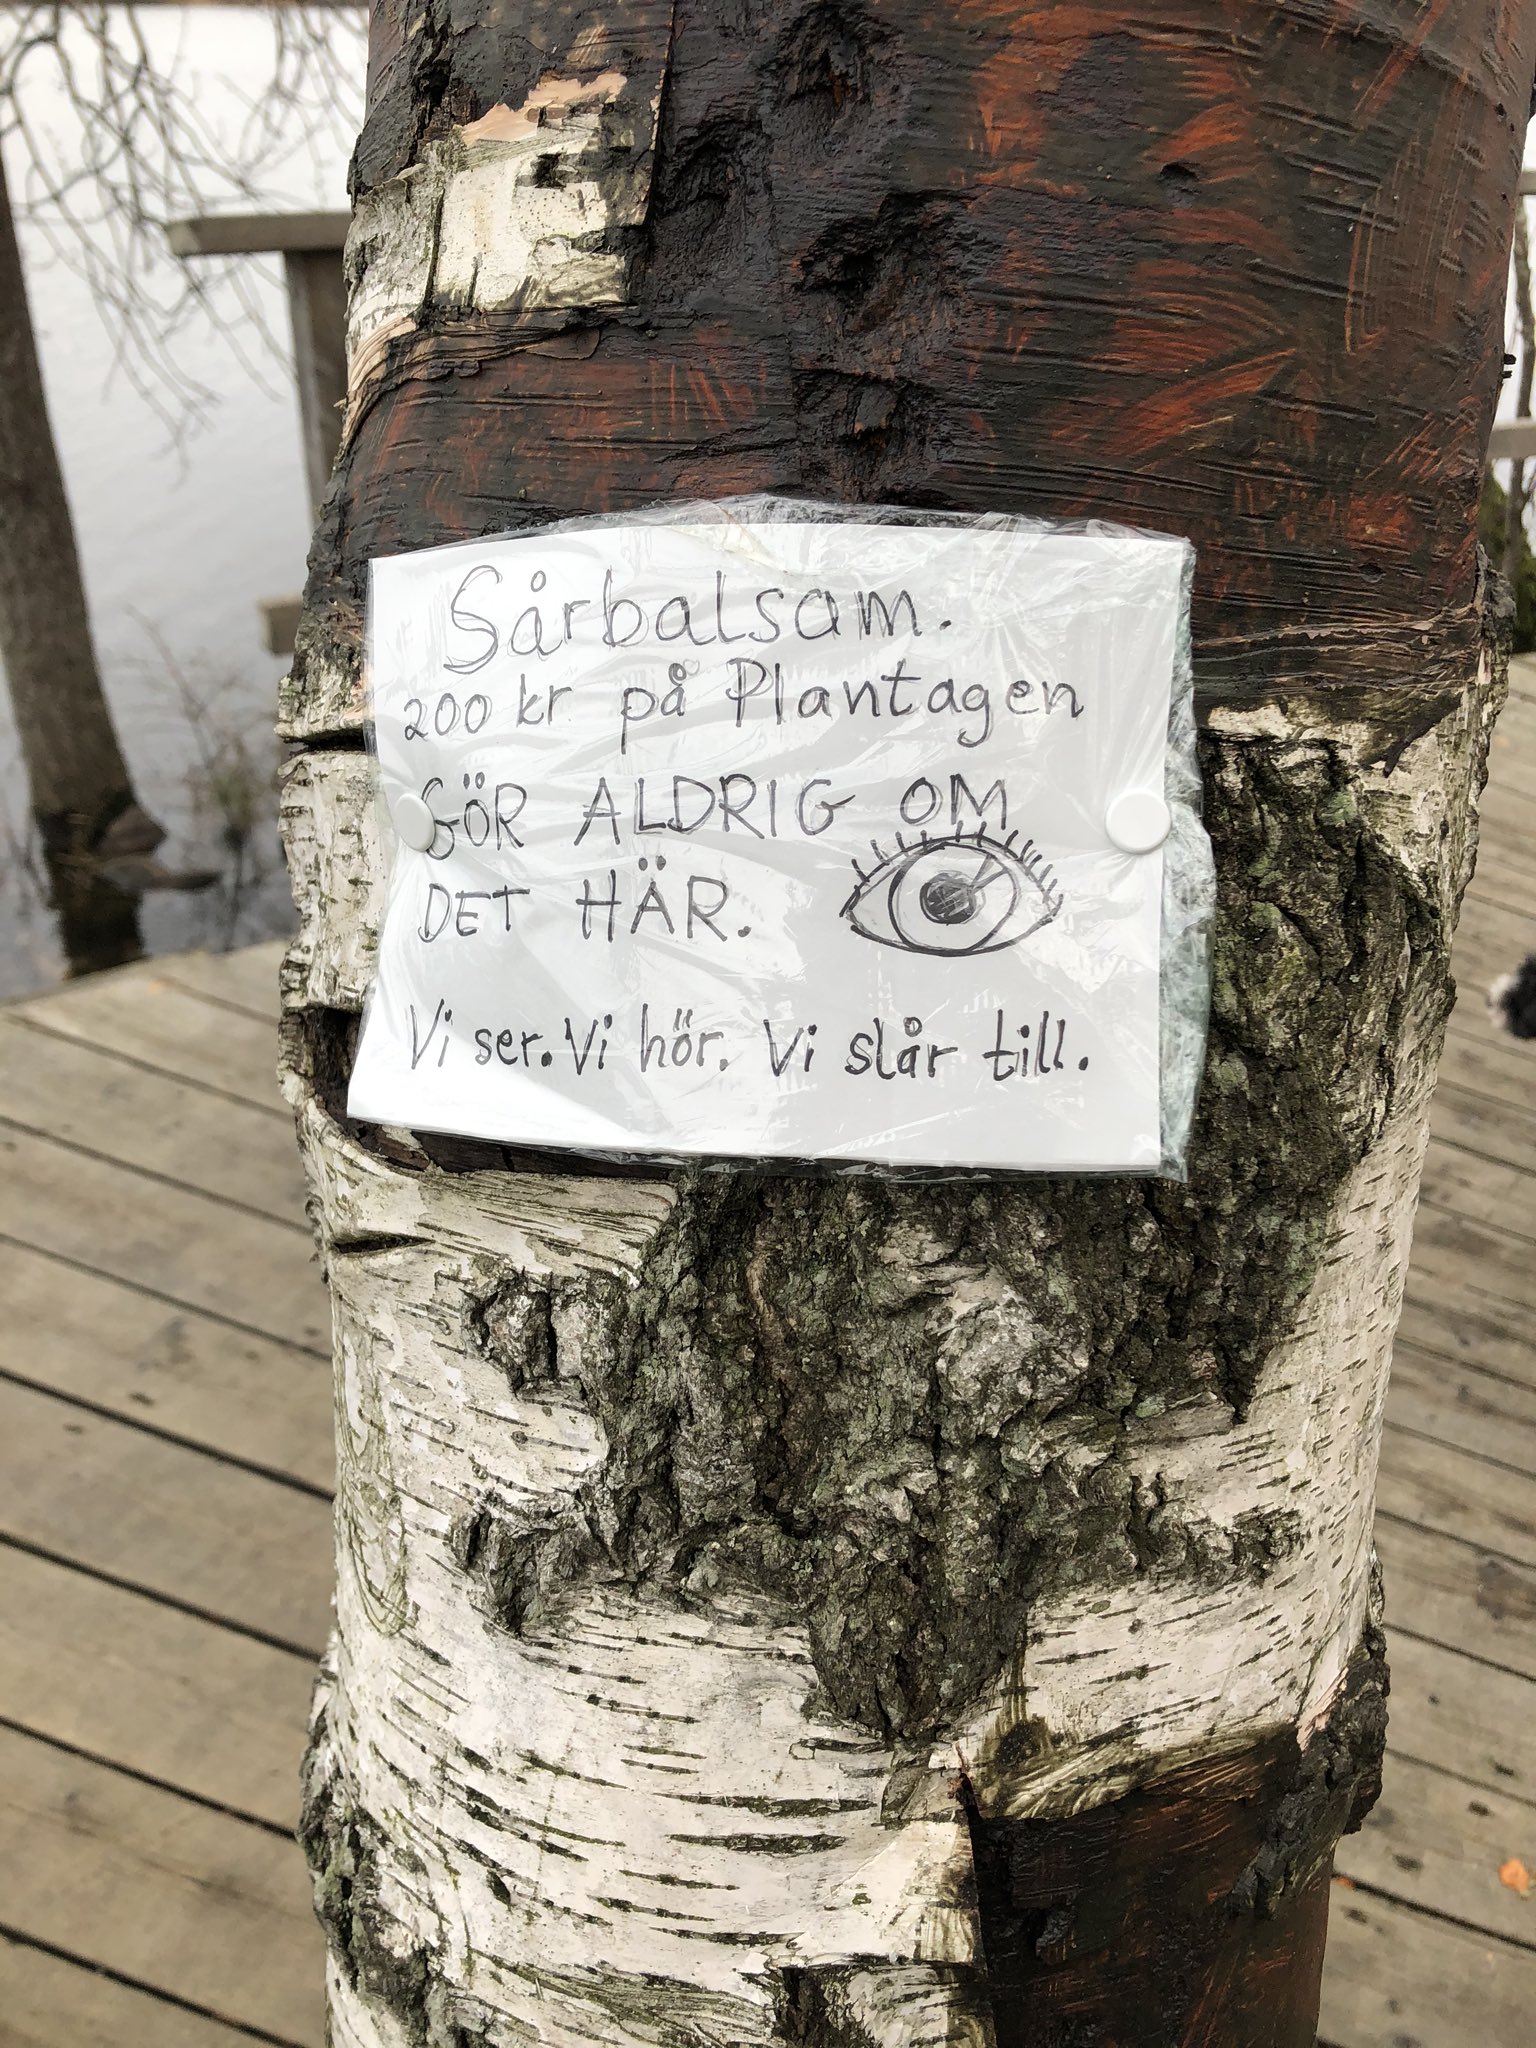 Sårbalsam.
200 kr på Plantagen
GÖR ALDRIG OM
DET HÄR.
Vi ser. Vi hör. Vi slår till.